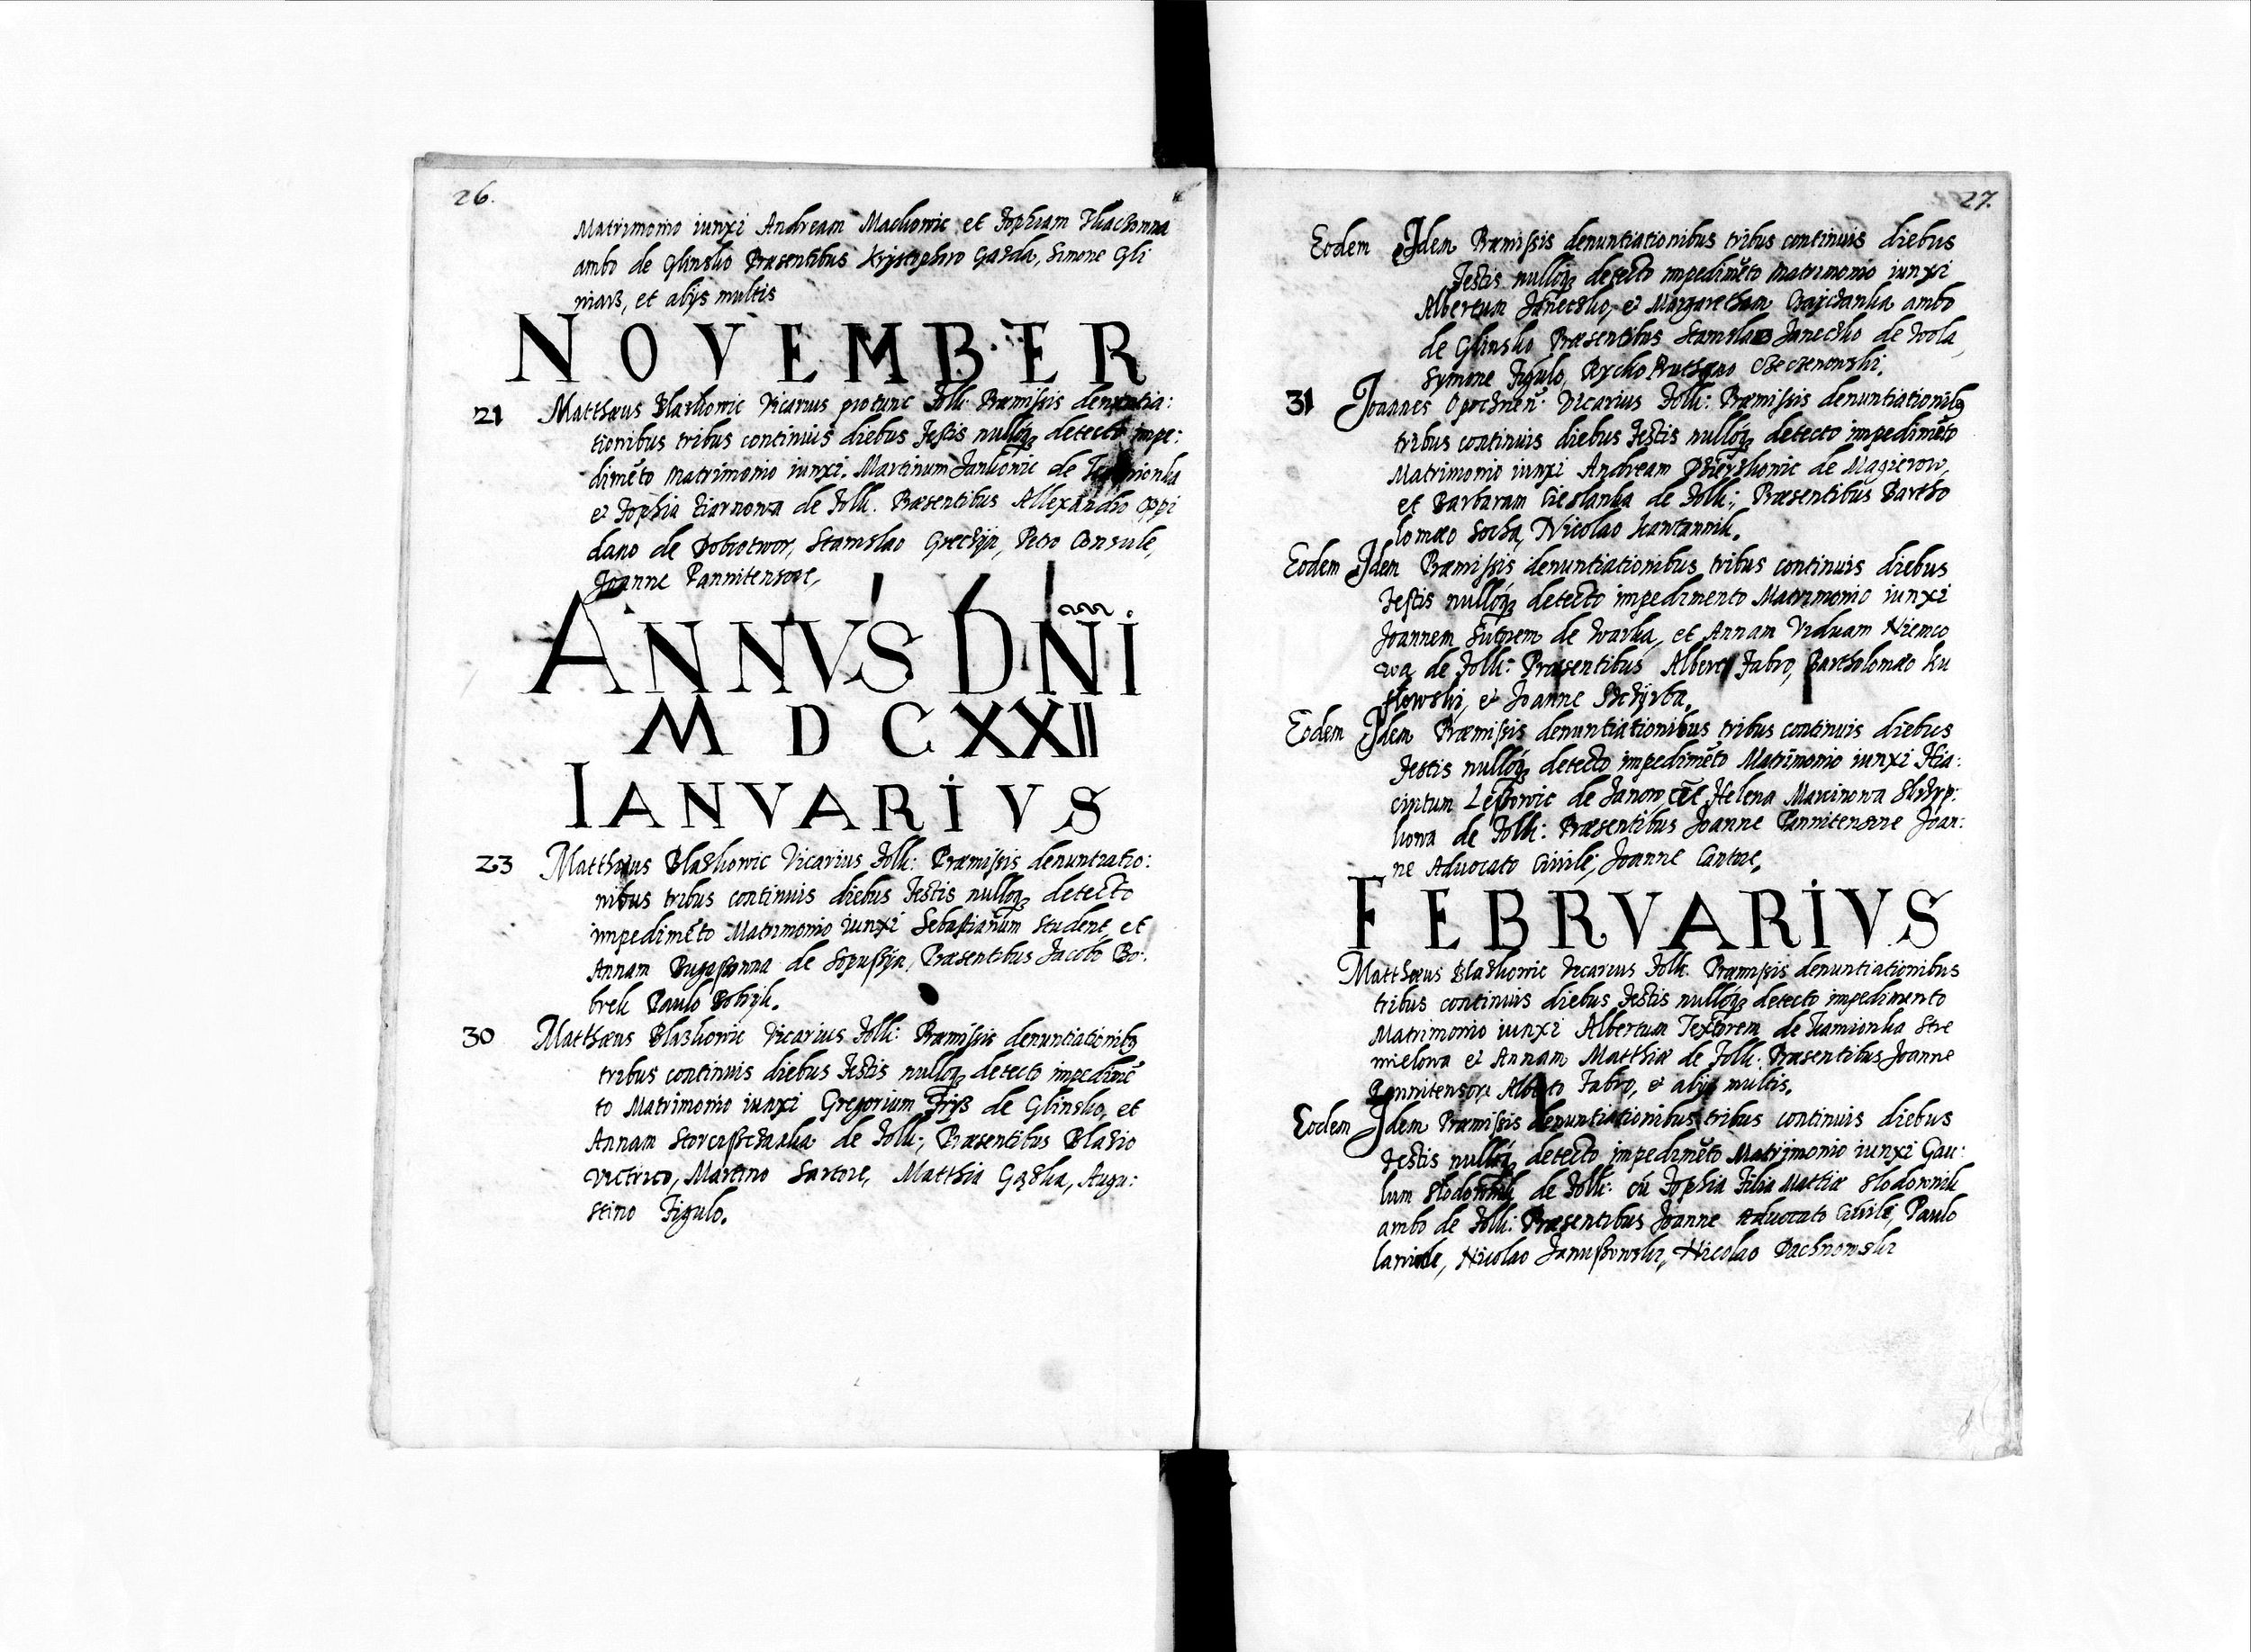 26.
Matrimonio iunxi Andream Mackowic et Zophiam
ambo de Glinsko Præsentibus Krystophro Gazda, Simone Gli
niarz, et alijs multis
NOVEMBER
21 Matthæus Blaskowic Vicarius pro tunc Zolk: Præmissis denuntia:
tionibus tribus continuis diebus festis nulloq₃ detecto impe:
dimĕto matrimonio iunxi. Martinum Jankowic de
et Zophia de Zolk. Præsentibus Allexandro Oppi
dano de Dobrotwor, Stanislao Petro Consule,
Joanne Pannitensore,
ANNVS DNI
M D C XXII
IANVARIVS
23 Matthæus Blaskowic Vicarius Zolk: Præmissis denuntiatio:
nibus tribus continuis diebus festis nulloq₃ detecto
impedimĕto Matrimonio iunxi Sebastianum Student, et
Annam de Præsentibus Jacobo Bo:
brek Paulo Bobryk.
30 Matthæus Blaskowic Vicarius Zolk: Præmissis denuntiationibꝯ
tribus continuis diebus festis nulloq₃ detecto impedimĕ
to Matrimonio iunxi Gregorium de Glinsko, et
Annam de Zolk:, Præsentibus Blasio
Victrico, Martino Sartore, Matthia Augu:
stino Figulo.
27.
Eodem Idem Præmissis denuntiationibus tribus continuis diebus
festis nulloq₃ detecto impedimĕto matrimonio iunxi
Albertum Janeczko, et Margaretham ambo
de Glinsko Præsentibus Stanislao Janeczko de Wola,
Symone Figulo,
31 Joannes Vicarius Zolk: Præmissis denuntiationibꝯ
tribus continuis diebus festis nulloq₃ detecto impedimĕto
Matrimonio iunxi Andream de Magierow,
et Barbaram de Zolk:, Præsentibus Bartho
lomæo Socha, Nicolao
Eodem Idem Præmissis denuntiationibus tribus continuis diebus
festis nulloq₃ detecto impedimento Matrimonio iunxi
Joannem Sutorem de Warka, et Annam Viduam Niemco
wa de Zolk: Præsentibus Alberto Fabro, Bartholomæo Ku
et Joanne
Eodem Idem Præmissis denuntiationibus tribus continuis diebus
festis nulloq₃ detecto impedimĕto Matrimonio iunxi Hia:
cintum de Janow Helena Marcinowa
kowa de Zolk: Præsentibus Joanne Pannitensore Joan:
ne Advocato Civile, Joanne Cantore,
FEBRVARIVS
Matthæus Blaskowic Vicarius Zolk. Præmissis denuntiationibus
tribus continuis diebus festis nulloq₃ detecto impedimento
Matrimonio iunxi Albertum Textorem de Kamionka Stre
mielowa et Annam Matthiæ de Zolk: Præsentibus Joanne
Pannitensore Alberto Fabro, et alijs multis.
Eodem Idem Præmissis denuntiationibus tribus continuis diebus
festis nulloq₃ detecto impedimĕto Matrimonio iunxi Gau:
lum de Zolk: cū Zophia Filia Mattiæ Slodownik
ambo de Zolk: Præsentibus Joanne Advocato Civile, Paulo
Nicolao Nicolao